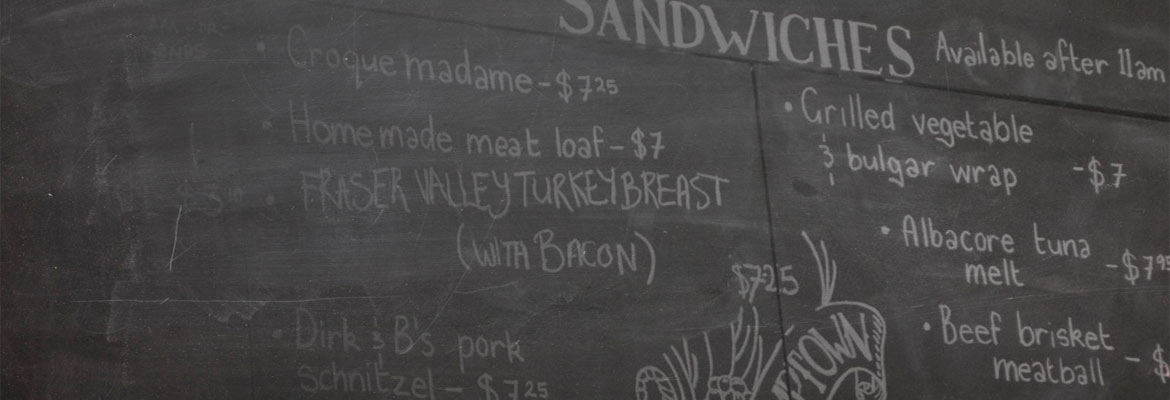 SANDWICHES Available after 11am
• Croque madame - $7 25
• Homemade meat loaf - $7
• FRASER VALLEY TURKEY BREAST
(WITH BACON)
$7 25
• Dirk & B's pork
schnitzel - $7 25
• Grilled vegetable
& bulgar wrap - $7
• Albacore tuna
melt - $7 95
• Beef brisket
meatball - $